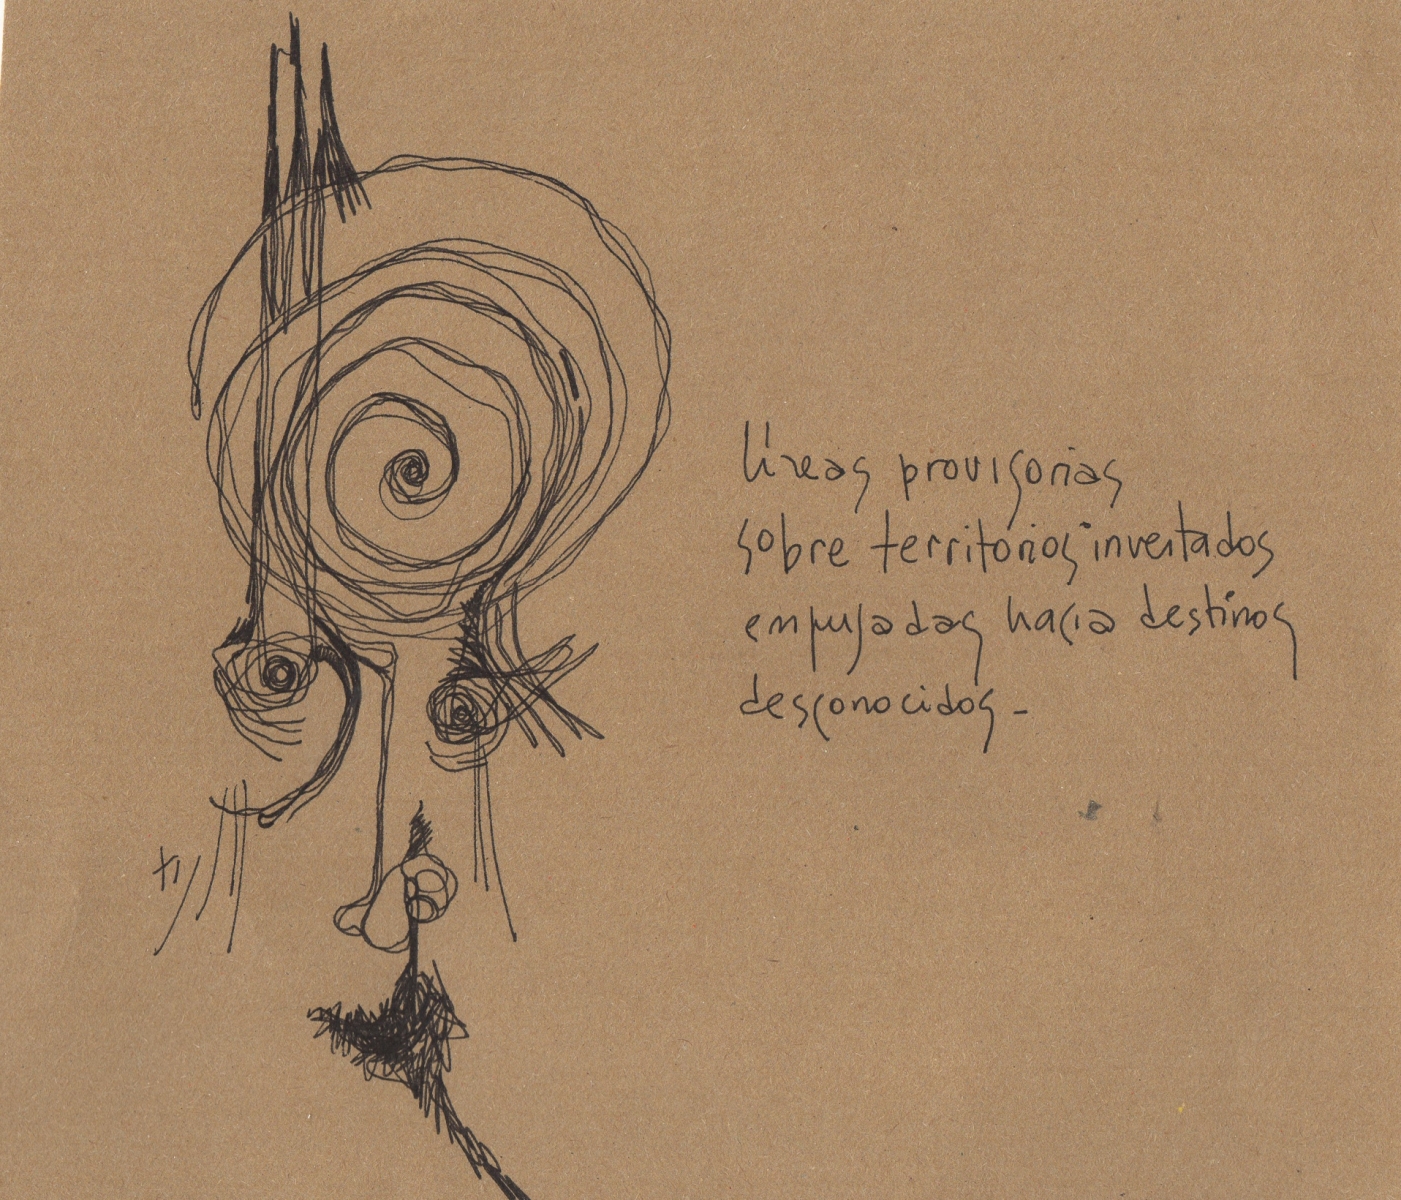 líneas provisorias
sobre territorios inventados
empujadas hacia destinos
desconocidos -